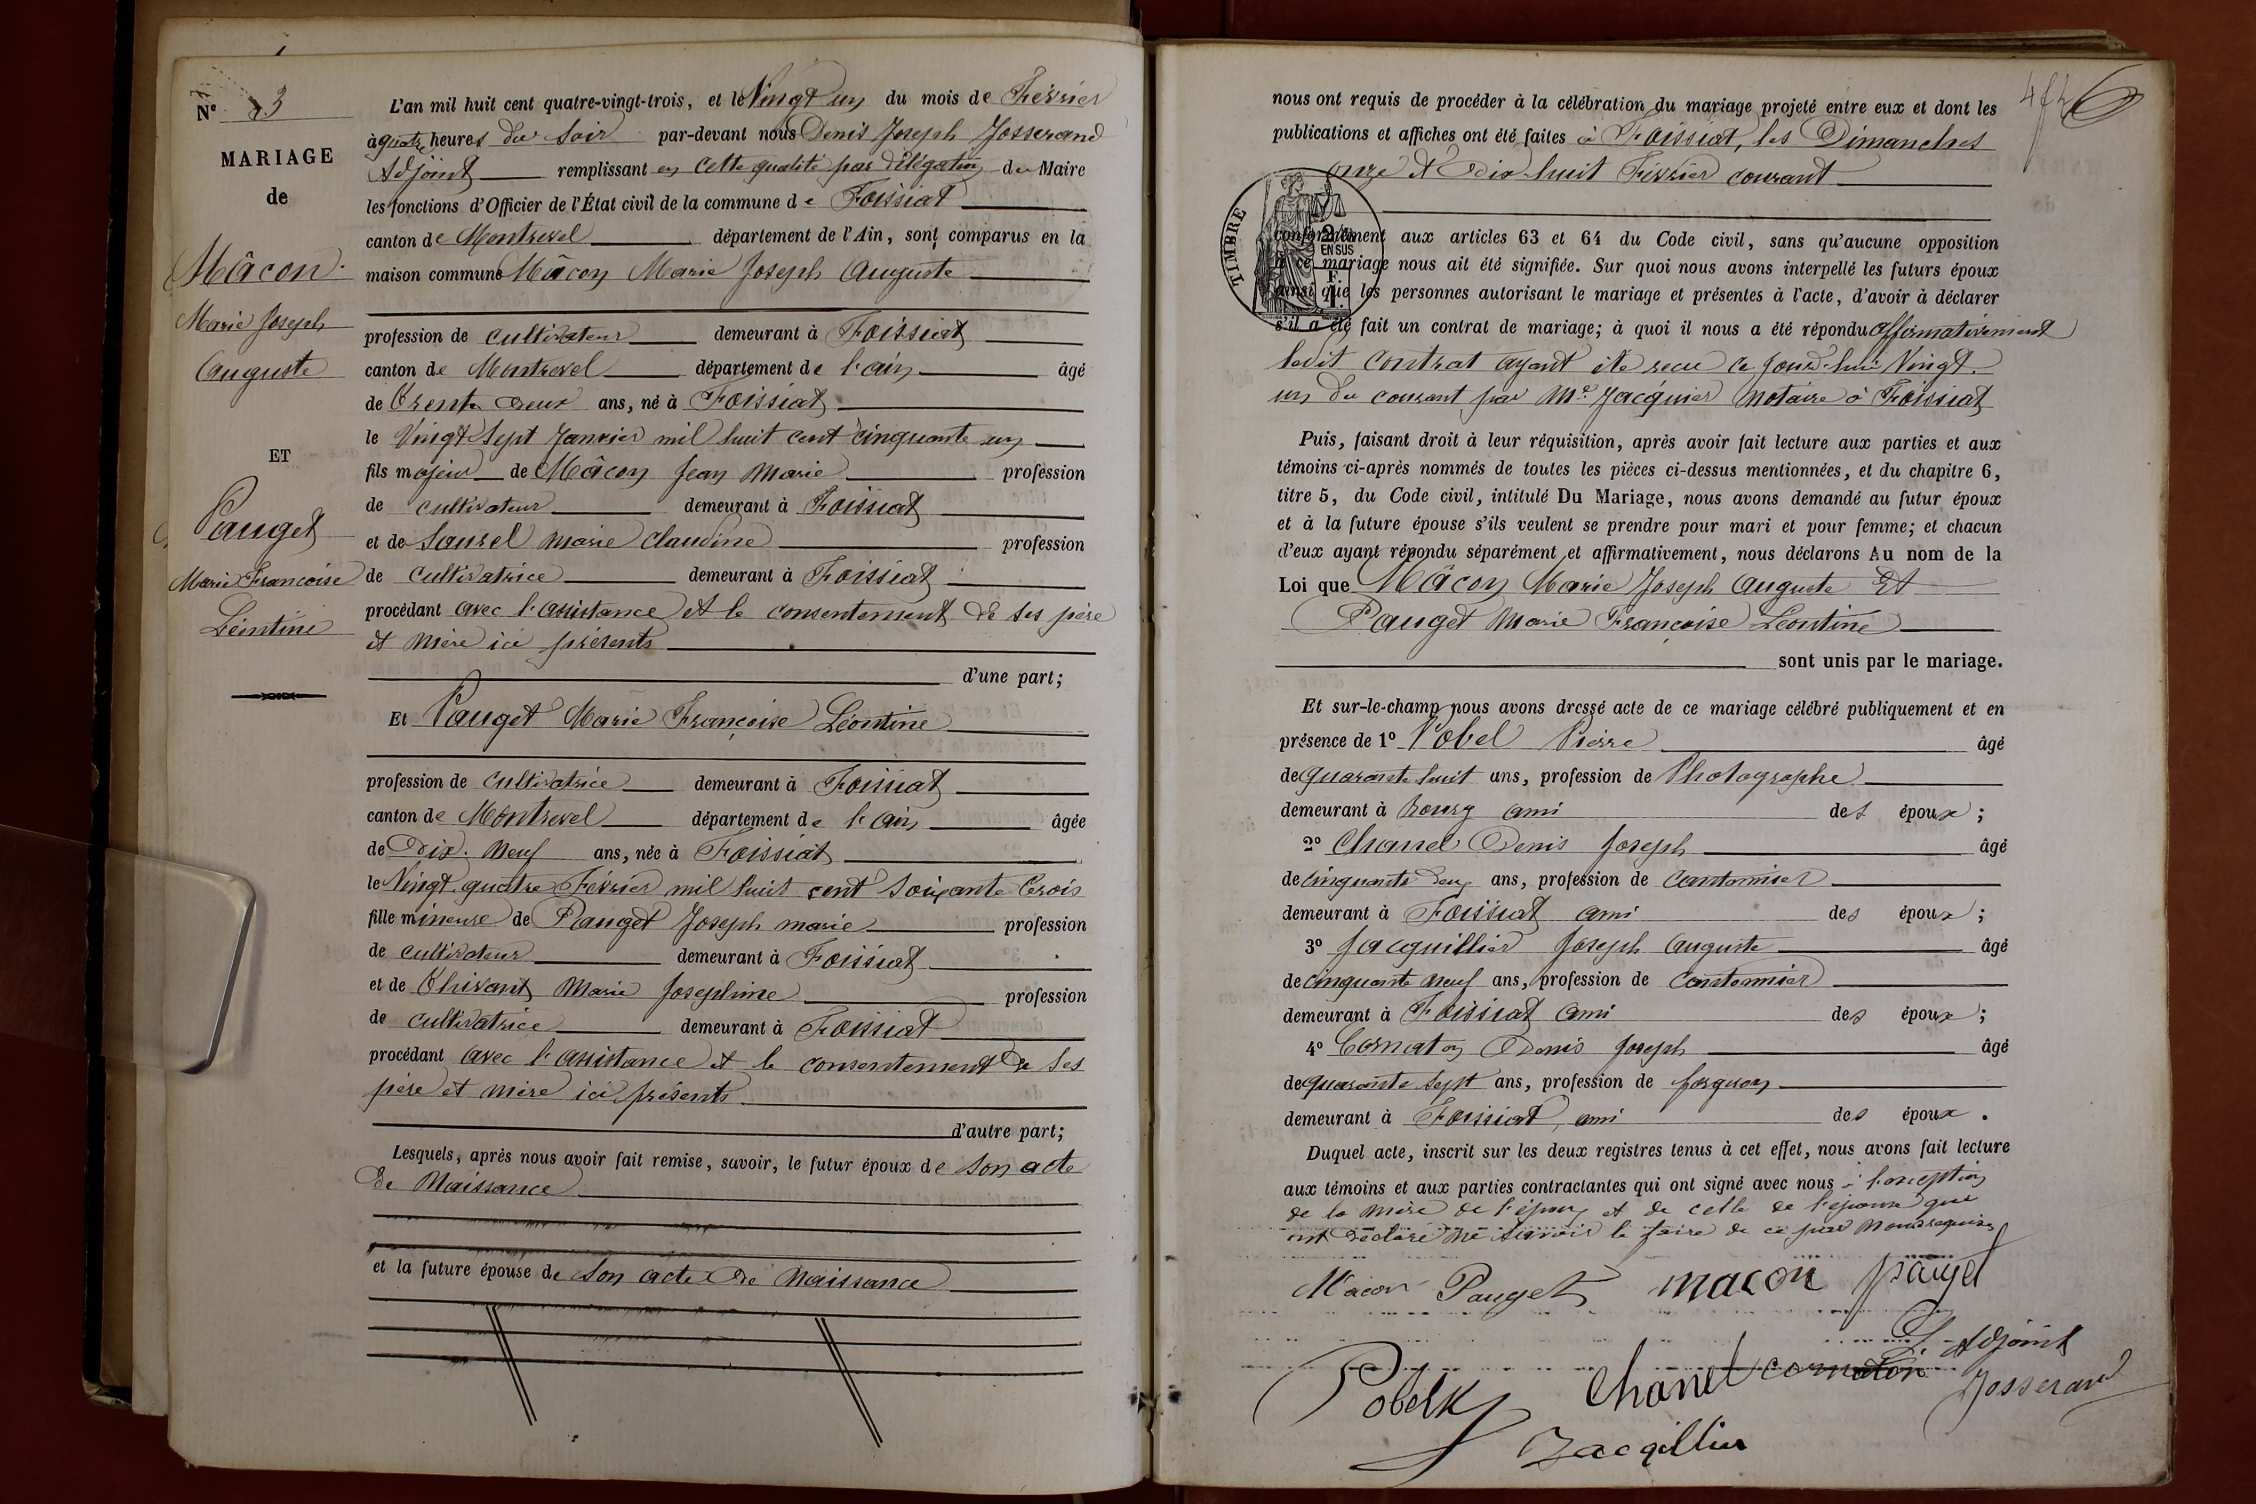 N° 3
MARIAGE
de
Mâcon
Marie Joseph
Auguste
ET
Pauget
Marie Françoise
Léontine
L'an mil huit cent quatre-vingt-trois, et le Vingt un du mois de Février
à quatre heures du Soir par-devant nous Denis Joseph Josserand
Adjoint remplissant en cette qualité par délégation du Maire
les fonctions d'Officier de l'État civil de la commune de Foissiat
canton de Montrevel département de l'Ain, sont comparus en la
maison commune Mâcon Marie Joseph Auguste
profession de cultivateur demeurant à Foissiat
canton de Montrevel département de l'ain âgé
de Trente deux ans, né à Foissiat
le Vingt Sept Janvier mil huit cent cinquante un
fils majeur de Mâcon Jean Marie profession
de cultivateur demeurant à Foissiat
et de Saurel marie Claudine profession
de cultivatrice demeurant à Foissiat
procédant avec l'assistance et le consentement de ses père
et mère ici présents
d'une part;
Et Pauget Marie Françoise Léontine
profession de cultivatrice demeurant à Foissiat
canton de Montrevel département de l'ain âgée
de Dix-Neuf ans, née à Foissiat
le Vingt quatre Février mil huit cent Soixante trois
fille mineure de Pauget Joseph marie profession
de cultivateur demeurant à Foissiat
et de Thivant Marie Josephine profession
de cultivatrice demeurant à Foissiat
procédant avec l'assistance et le consentement de ses
père et mère ici présents
d'autre part;
Lesquels, après nous avoir fait remise, savoir, le futur époux de son acte
de Naissance
et la future épouse de son acte de Naissance
nous ont requis de procéder à la célébration du mariage projeté entre eux et dont les
publications et affiches ont été faites à Foissiat, les Dimanches
onze et Dix huit Février courant
TIMBRE
EN SUS
conformément aux articles 63 et 64 du Code civil, sans qu'aucune opposition
à ce mariage nous ait été signifiée. Sur quoi nous avons interpellé les futurs époux
ainsi que les personnes autorisant le mariage et présentes à l'acte, d'avoir à déclarer
s'il a été fait un contrat de mariage; à quoi il nous a été répondu affirmativement
ledit contrat ayant été recu ce jourd'hui Vingt
un du courant par Me Jacquier Notaire à Foissiat
Puis, faisant droit à leur réquisition, après avoir fait lecture aux parties et aux
témoins ci-après nommés de toutes les pièces ci-dessus mentionnées, et du chapitre 6,
titre 5, du Code civil, intitulé Du Mariage, nous avons demandé au futur époux
et à la future épouse s'ils veulent se prendre pour mari et pour femme; et chacun
d'eux ayant répondu séparément et affirmativement, nous déclarons Au nom de la
Loi que Mâcon Marie Joseph Auguste Et
Pauget Marie Françoise Léontine
sont unis par le mariage.
Et sur-le-champ nous avons dressé acte de ce mariage célébré publiquement et en
présence de 1° Pobel Pierre âgé
de quarante huit ans, profession de Photographe
demeurant à Bourg ami des époux;
2° Chanel Denis Joseph âgé
de cinquante deux ans, profession de Cantonnier
demeurant à Foissiat ami des époux;
3° Jacquillier Joseph Auguste âgé
de cinquante neuf ans, profession de Cantonnier
demeurant à Foissiat ami des époux;
4° Cornaton Denis Joseph âgé
de quarante sept ans, profession de forgeron
demeurant à Foissiat, ami des époux.
Duquel acte, inscrit sur les deux registres tenus à cet effet, nous avons fait lecture
aux témoins et aux parties contractantes qui ont signé avec nous à l'exception
de la mère de l'époux et de celle de l'épouse qui
ont déclaré ne savoir le faire de ce par nous requises
Macon Pauget macon pauget
L'Adjoint
Pobel Chanel cornaton Josserand
Jacqillier